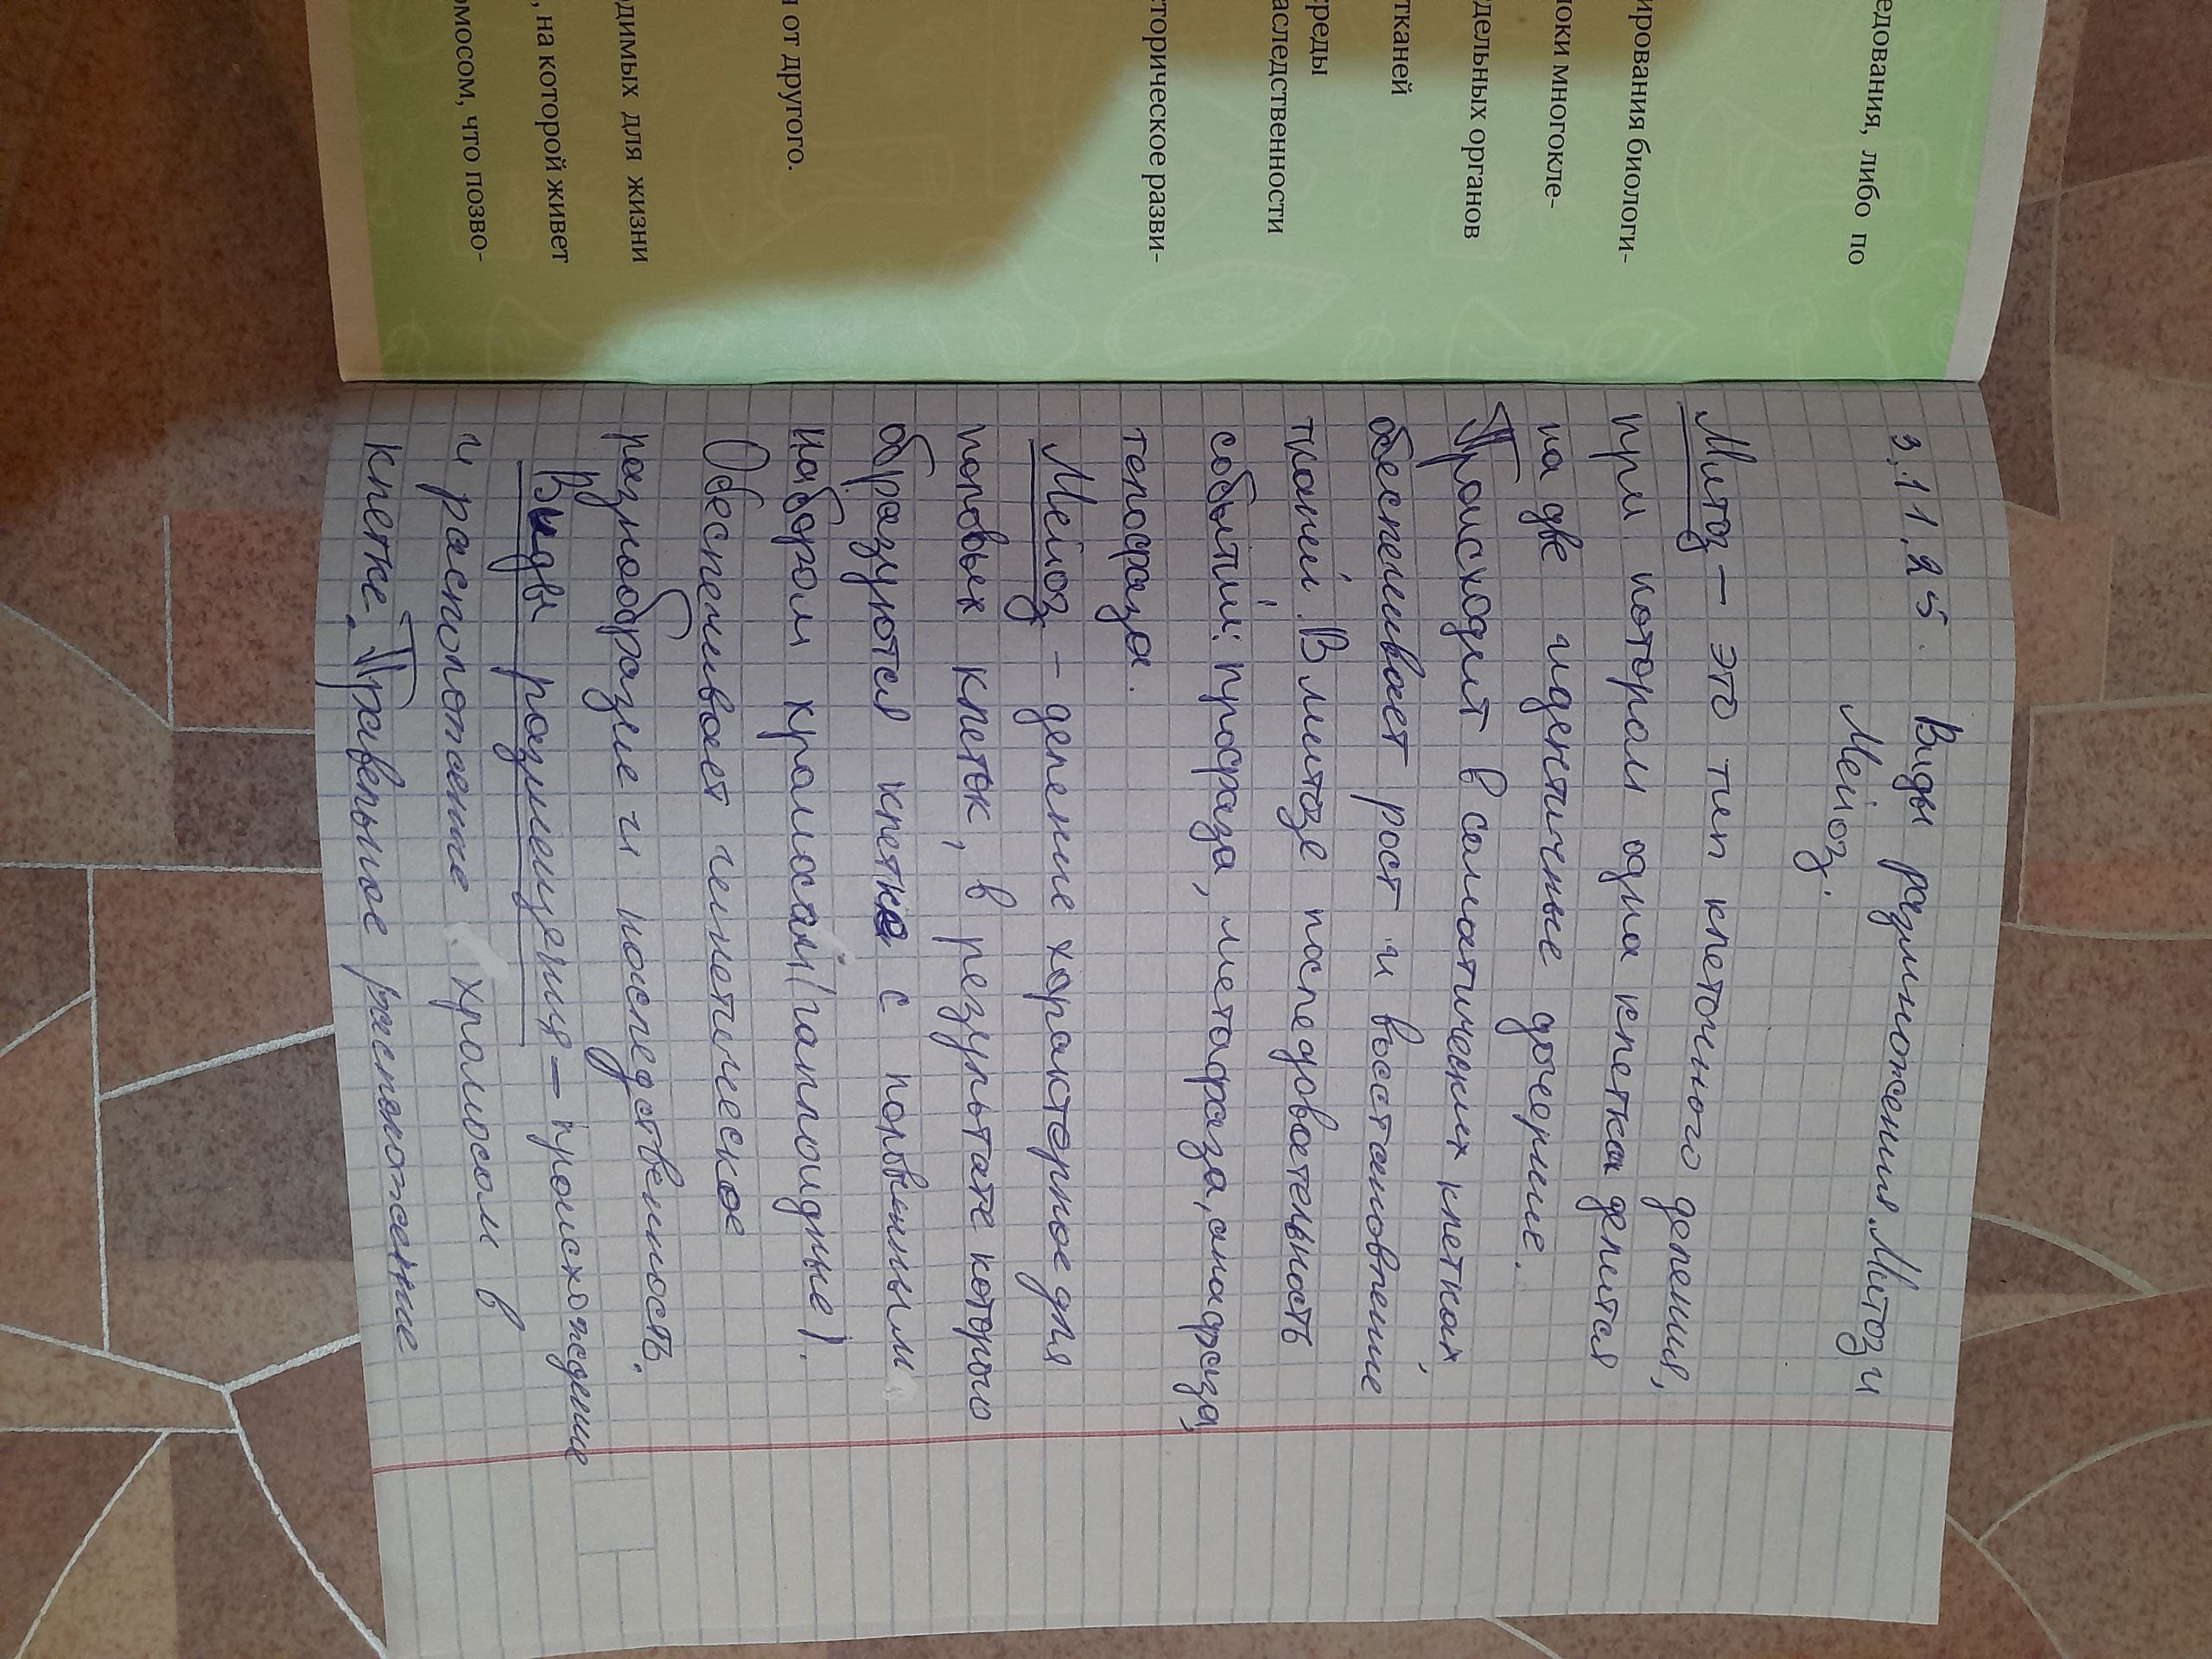 едования, либо по
ирования биологи-
локи многокле-
дельных органов
тканей
реды
аследственности
сторическое разви-
от другого.
одимых для жизни
, на которой живет
омосом, что позво-
3.11.25. Виды размножения. Митоз и
Мейоз.
Митоз – это тип клеточного деления,
при котором одна клетка делится
на две идентичные дочерние.
Происходит в соматических клетках,
обеспечивает рост и восстановление
тканей. В митозе последовательность
событий: профаза, метафаза, анафаза,
телофаза.
Мейоз – деление характерное для
половых клеток, в результате которого
образуются клетке с половинным
набором хромосом (гаплоидные).
Обеспечивает генетическое
разнообразие и наследственность.
Виды размещения – происхождение
и расположение хромосом в
клетке. Правельное расположение